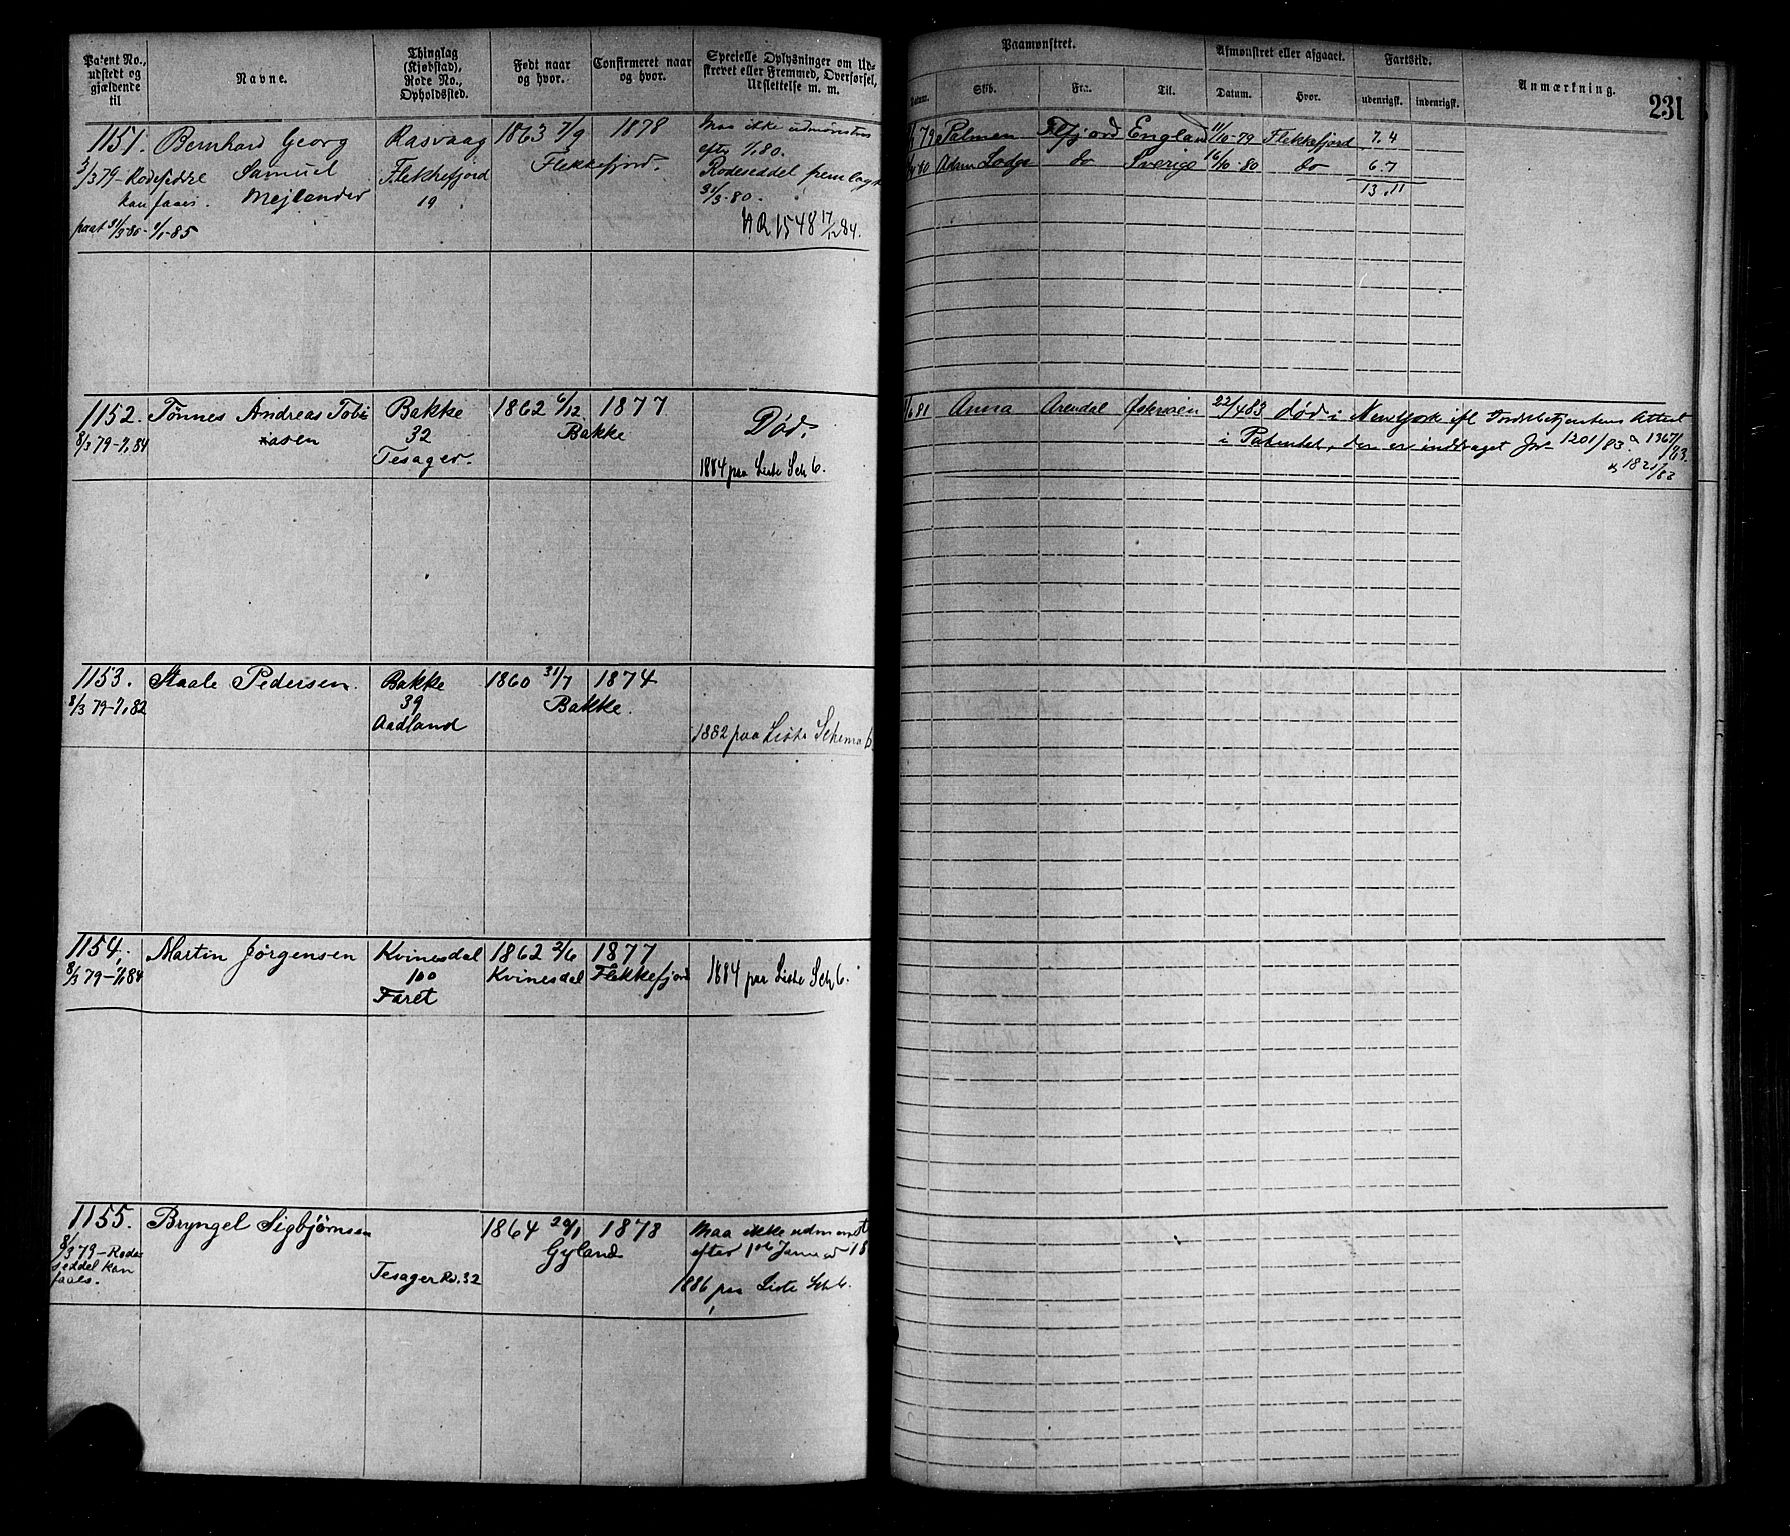 Patent No., udstedt og gjældende til
Navne.
Thinglag (Kjøbstad), Rode No., Opholdssted.
Født naar og hvor.
Confirmeret naar og hvor.
Specielle Oplysninger om Udskrevet eller Fremmed, Overførsel, Udslettelse m. m.
Paamønstret.
Datum.
Skib.
Fra.
Til.
Afmønstret eller afgaaet.
Datum.
Hvor.
Fartstid.
udenrigsk.
indenrigsk.
Anmærkning.
231
1151. Bernhard Georg Rasvaag 1863 7/9 1878 Maa ikke udmønstres
/3 79 - Rodeseddel Samuel Flekkefjord Flekkefjord. efter 1/1 80.
kan faaes. Mejlander 19 Rodeseddel fremlagt
paat 31/3 80 - 1/1 85 31/3 80.
NR 1548 17/12 84.
79 Palmen Flfjord England 11/10 79 Flekkefjord 7.4
80 Adam Lodge do Sverige 16/10 80 do 6.7
13.11
1152. Tønnes Andreas Tobi Bakke 1862 6/12 1877 Død.
8/3 79 - 1/1 84 asen 32 Bakke
Tesager. 1884 paa Liste Sch 6.
/6 81 Anna Arendal Østersøen 22/4 83 død i NewYork ifl
i Patentet, den er inddraget Jr 1201/83 & 1367/83.
& 1821/83
1153. Staale Pedersen. Bakke 1860 31/7 1874
8/3 79 - 1/1 82 39 Bakke.
Aadland 1882 paa Liste Schema 6
1154. Martin Jørgensen Kvinesdal 1862 2/6 1877
8/3 79 - 1/1 84 100 Kvinesdal Flekkefjord 1884 paa Liste Sch 6.
Faret
1155. Bryngel Sigbjørnsen 1864 20/1 1878 Maa ikke udmønst
8/3 79 - Rode Gyland efter 1ste Januar 18
seddel kan Tesager Ro. 32
faaes. 1886 paa Liste Sch 6.